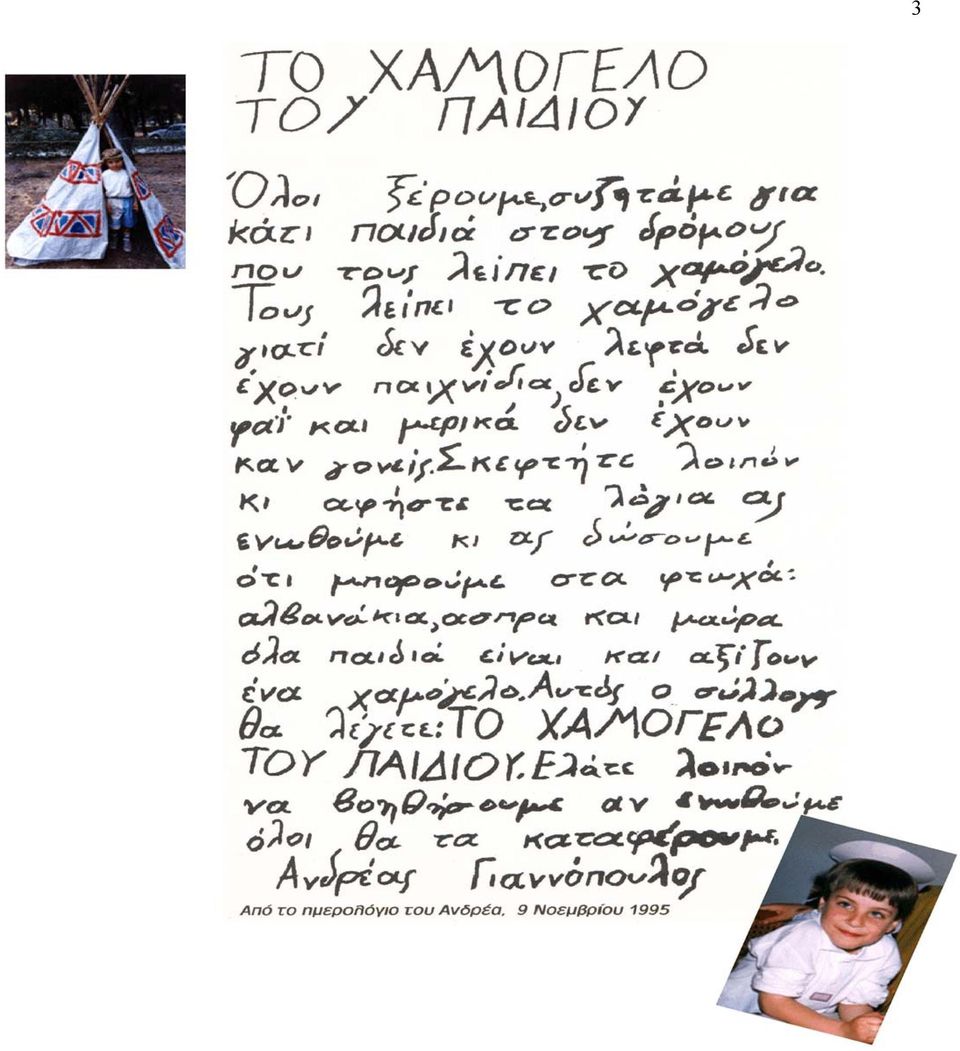 3
ΤΟ ΧΑΜΟΓΕΛΟ
ΤΟΥ ΠΑΙΔΙΟΥ
Όλοι ξέρουμε,συζητάμε για
κάτι παιδιά στους δρόμους
που τους λείπει το χαμόγελο.
Τους λείπει το χαμόγελο
γιατί δεν έχουν λεφτά δεν
έχουν παιχνίδια, δεν έχουν
φαΐ και μερικά δεν έχουν
καν γονείς.Σκεφτήτε λοιπόν
κι αφήστε τα λόγια ας
ενωθούμε κι ας δώσουμε
ότι μπορούμε στα φτωχά:
αλβανάκια,ασπρα και μαύρα
όλα παιδιά είναι και αξίζουν
ένα χαμόγελο.Αυτός ο σύλλογος
θα λέγετε:ΤΟ ΧΑΜΟΓΕΛΟ
ΤΟΥ ΠΑΙΔΙΟΥ.Ελάτε λοιπόν
να βοηθήσουμε αν ενωθούμε
όλοι θα τα καταφέρουμε.
Ανδρέας Γιαννόπουλος
Από το ημερολόγιο του Ανδρέα, 9 Νοεμβρίου 1995